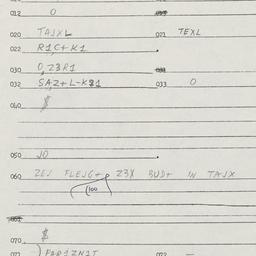 012 O
020 TAJXL 021 TEXL
022 R1C+K1
030 0,Z3R1
032 SAZ+L-K31 033 O
040 $
050 JO
060 ZEJ FLEJG+ Z3X BUD+ IN TAJX
100
070 $
071 ) FAR1ZN1T 072 —